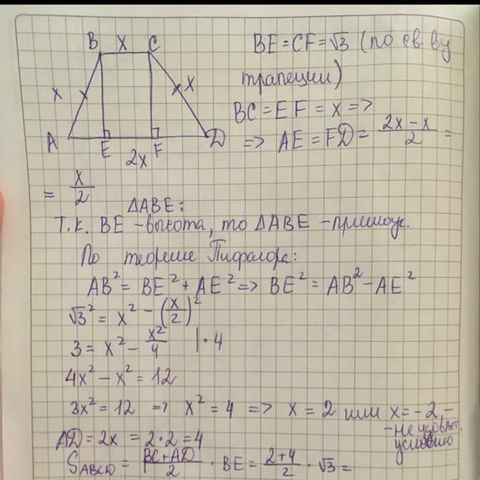 B x C
BE = CF = √3 (по св. ву
трапеции)
x x
BC = EF = x =>
A E F D
2x
=> AE = FD = (2x - x)/2 =
= x/2
△ABE:
Т.к. BE - высота, то △ABE - прямоуг.
По теореме Пифагора:
AB² = BE² + AE² => BE² = AB² - AE²
√3² = x² - (x/2)²
3 = x² - x²/4 | · 4
4x² - x² = 12
3x² = 12 => x² = 4 => x = 2 или x = -2 -
- не удовл.
условию
AD = 2x = 2·2 = 4
S ABCD = (BC + AD)/2 · BE = (2+4)/2 · √3 =